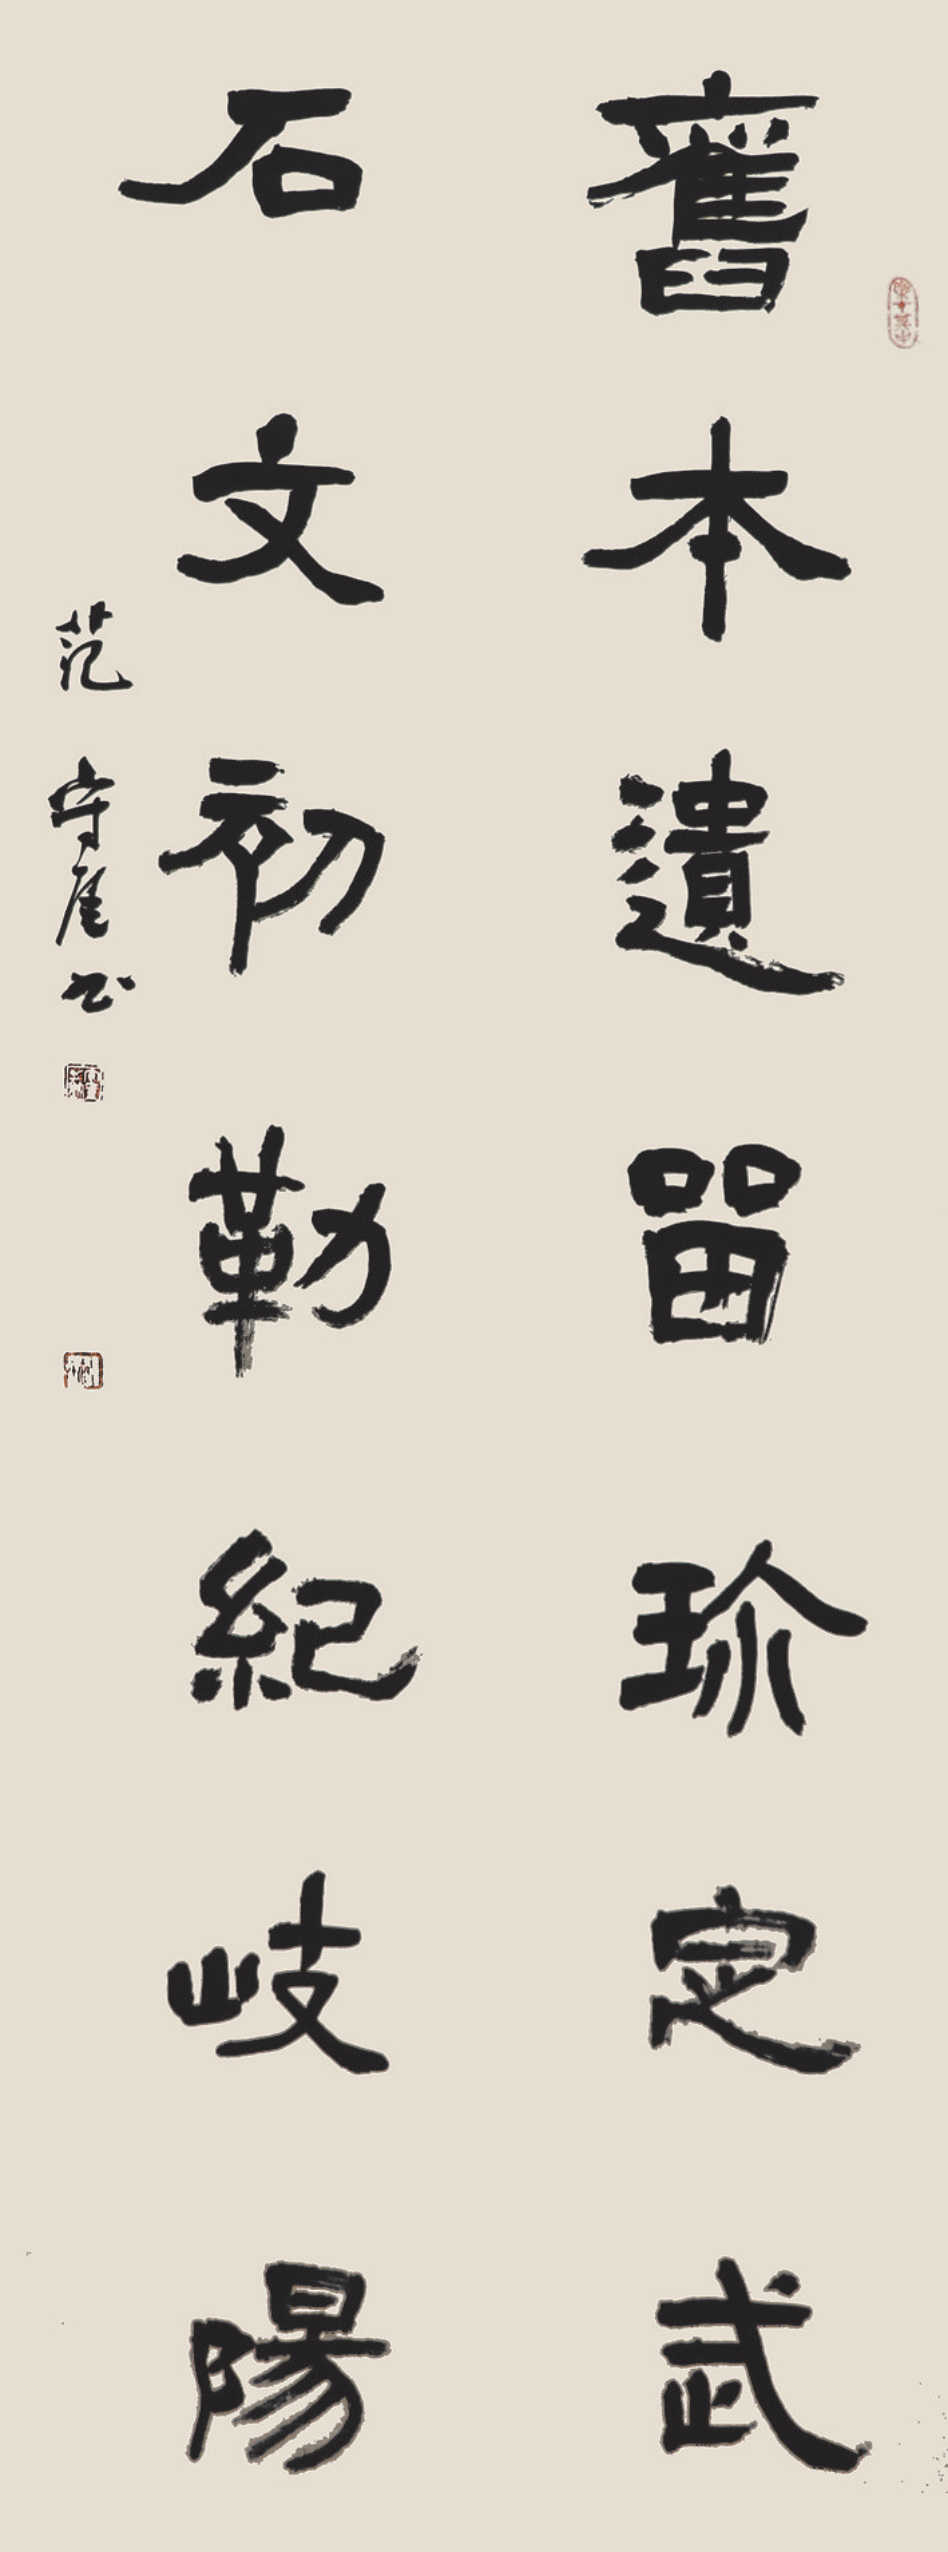 舊本遺留珍定武
石文初勒紀岐陽
范守崖书